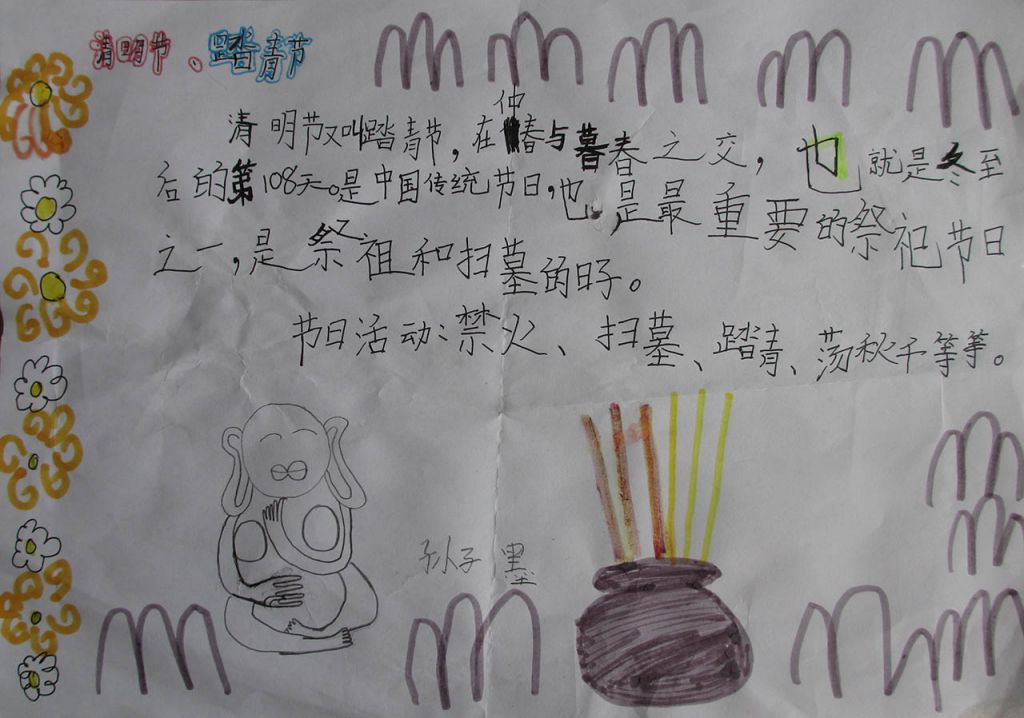 清明节、踏青节
清明节又叫踏青节，在仲春与暮春之交，也就是冬至
后的第108天。是中国传统节日，也是最重要的祭祀节日
之一，是祭祖和扫墓的日子。
节日活动：禁火、扫墓、踏青、荡秋千等等。
孙子墨